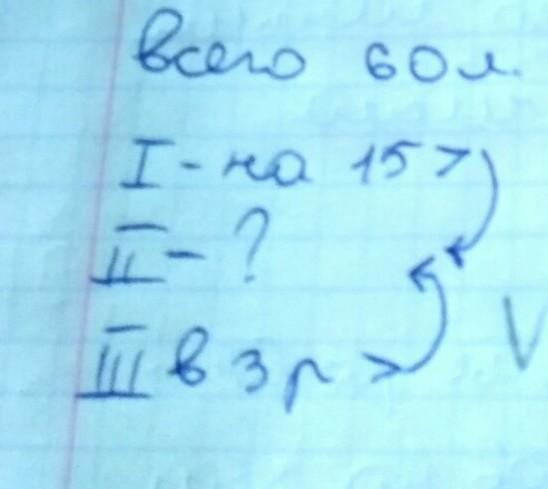 всего 60 л.
I - на 15 >
II - ?
III в 3 р >